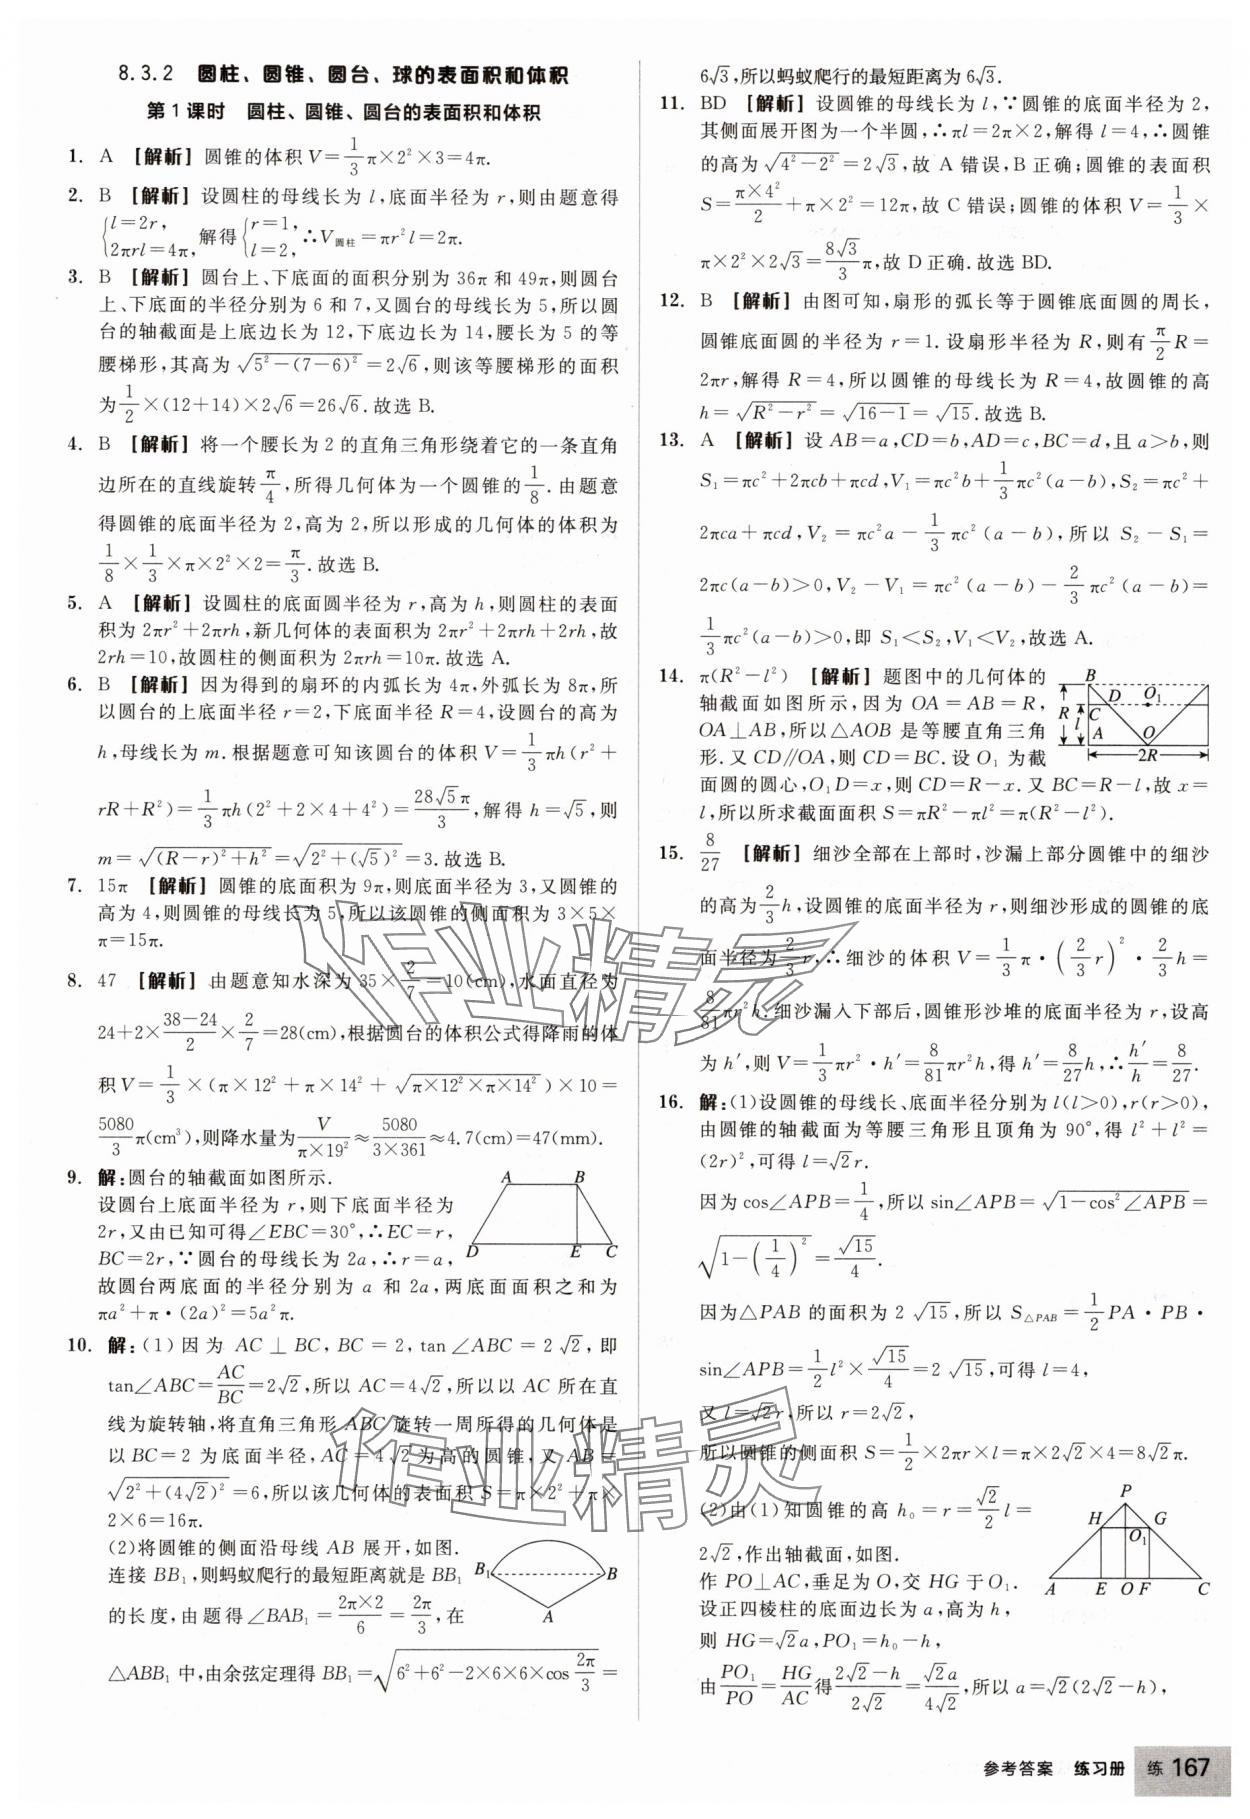 8.3.2 圆柱、圆锥、圆台、球的表面积和体积
第1课时 圆柱、圆锥、圆台的表面积和体积
1. A [解析] 圆锥的体积V=1/3π×2²×3=4π.
2. B [解析] 设圆柱的母线长为l,底面半径为r,则由题意得
{l=2r, 2πrl=4π, 解得{r=1, l=2, ∴V圆柱=πr²l=2π.
3. B [解析] 圆台上、下底面的面积分别为36π和49π,则圆台
上、下底面的半径分别为6和7,又圆台的母线长为5,所以圆
台的轴截面是上底边长为12,下底边长为14,腰长为5的等
腰梯形,其高为√(5²-(7-6)²)=2√6,则该等腰梯形的面积
为1/2×(12+14)×2√6=26√6.故选B.
4. B [解析] 将一个腰长为2的直角三角形绕着它的一条直角
边所在的直线旋转π/4,所得几何体为一个圆锥的1/8.由题意
得圆锥的底面半径为2,高为2,所以形成的几何体的体积为
1/8×1/3×π×2²×2=π/3.故选B.
5. A [解析] 设圆柱的底面圆半径为r,高为h,则圆柱的表面
积为2πr²+2πrh,新几何体的表面积为2πr²+2πrh+2rh,故
2rh=10,故圆柱的侧面积为2πrh=10π.故选A.
6. B [解析] 因为得到的扇环的内弧长为4π,外弧长为8π,所
以圆台的上底面半径r=2,下底面半径R=4,设圆台的高为
h,母线长为m.根据题意可知该圆台的体积V=1/3πh(r²+
rR+R²)=1/3πh(2²+2×4+4²)=28√5π/3,解得h=√5,则
m=√((R-r)²+h²)=√(2²+(√5)²)=3.故选B.
7. 15π [解析] 圆锥的底面积为9π,则底面半径为3,又圆锥的
高为4,则圆锥的母线长为5,所以该圆锥的侧面积为3×5×
π=15π.
8. 47 [解析] 由题意知水深为35×2/7=10(cm),水面直径为
24+2×(38-24)/2×2/7=28(cm),根据圆台的体积公式得降雨的体
积V=1/3×(π×12²+π×14²+√(π×12²×π×14²))×10=
5080/3π(cm³),则降水量为V/(π×19²)≈5080/(3×361)≈4.7(cm)=47(mm).
9. 解:圆台的轴截面如图所示.
设圆台上底面半径为r,则下底面半径为
2r,又由已知可得∠EBC=30°,∴EC=r,
BC=2r,∵圆台的母线长为2a,∴r=a,
故圆台两底面的半径分别为a和2a,两底面面积之和为
πa²+π·(2a)²=5a²π.
A B
D E C
10. 解:(1)因为AC⊥BC,BC=2,tan∠ABC=2√2,即
tan∠ABC=AC/BC=2√2,所以AC=4√2,所以以AC所在直
线为旋转轴,将直角三角形ABC旋转一周所得的几何体是
以BC=2为底面半径,AC=4√2为高的圆锥,又AB=
√(2²+(4√2)²)=6,所以该几何体的表面积S=π×2²+π×
2×6=16π.
(2)将圆锥的侧面沿母线AB展开,如图.
连接BB₁,则蚂蚁爬行的最短距离就是BB₁
的长度,由题得∠BAB₁=2π×2/6=2π/3,在
B₁ B
A
△ABB₁中,由余弦定理得BB₁=√(6²+6²-2×6×6×cos2π/3)=
6√3,所以蚂蚁爬行的最短距离为6√3.
11. BD [解析] 设圆锥的母线长为l,∵圆锥的底面半径为2,
其侧面展开图为一个半圆,∴πl=2π×2,解得l=4,∴圆锥
的高为√(4²-2²)=2√3,故A错误,B正确;圆锥的表面积
S=π×4²/2+π×2²=12π,故C错误;圆锥的体积V=1/3×
π×2²×2√3=8√3/3π,故D正确.故选BD.
12. B [解析] 由图可知,扇形的弧长等于圆锥底面圆的周长,
圆锥底面圆的半径为r=1.设扇形半径为R,则有π/2R=
2πr,解得R=4,所以圆锥的母线长为R=4,故圆锥的高
h=√(R²-r²)=√(16-1)=√15.故选B.
13. A [解析] 设AB=a,CD=b,AD=c,BC=d,且a>b,则
S₁=πc²+2πcb+πcd,V₁=πc²b+1/3πc²(a-b),S₂=πc²+
2πca+πcd,V₂=πc²a-1/3πc²(a-b),所以S₂-S₁=
2πc(a-b)>0,V₂-V₁=πc²(a-b)-2/3πc²(a-b)=
1/3πc²(a-b)>0,即S₁<S₂,V₁<V₂,故选A.
14. π(R²-l²) [解析] 题图中的几何体的
轴截面如图所示,因为OA=AB=R,
OA⊥AB,所以△AOB是等腰直角三角
形.又CD∥OA,则CD=BC.设O₁为截
面圆的圆心,O₁D=x,则CD=R-x.又BC=R-l,故x=
l,所以所求截面面积S=πR²-πl²=π(R²-l²).
B D O₁
R C
l A O
2R
15. 8/27 [解析] 细沙全部在上部时,沙漏上部分圆锥中的细沙
的高为2/3h,设圆锥的底面半径为r,则细沙形成的圆锥的底
面半径为2/3r,∴细沙的体积V=1/3π·(2/3r)²·2/3h=
8/81πr²h.细沙漏入下部后,圆锥形沙堆的底面半径为r,设高
为h′,则V=1/3πr²·h′=8/81πr²h,得h′=8/27h,∴h′/h=8/27.
16. 解:(1)设圆锥的母线长、底面半径分别为l(l>0),r(r>0),
由圆锥的轴截面为等腰三角形且顶角为90°,得l²+l²=
(2r)²,可得l=√2r.
因为cos∠APB=1/4,所以sin∠APB=√(1-cos²∠APB)=
√(1-(1/4)²)=√15/4.
因为△PAB的面积为2√15,所以S△PAB=1/2PA·PB·
sin∠APB=1/2l²×√15/4=2√15,可得l=4,
又l=√2r,所以r=2√2,
所以圆锥的侧面积S=1/2×2πr×l=π×2√2×4=8√2π.
(2)由(1)知圆锥的高h₀=r=√2/2l=
2√2,作出轴截面,如图.
作PO⊥AC,垂足为O,交HG于O₁.
设正四棱柱的底面边长为a,高为h,
则HG=√2a,PO₁=h₀-h,
由PO₁/PO=HG/AC得(2√2-h)/2√2=√2a/4√2,所以a=√2(2√2-h),
P
H G
O₁
A E O F C
作业精灵
作业精灵
参考答案 练习册 练 167